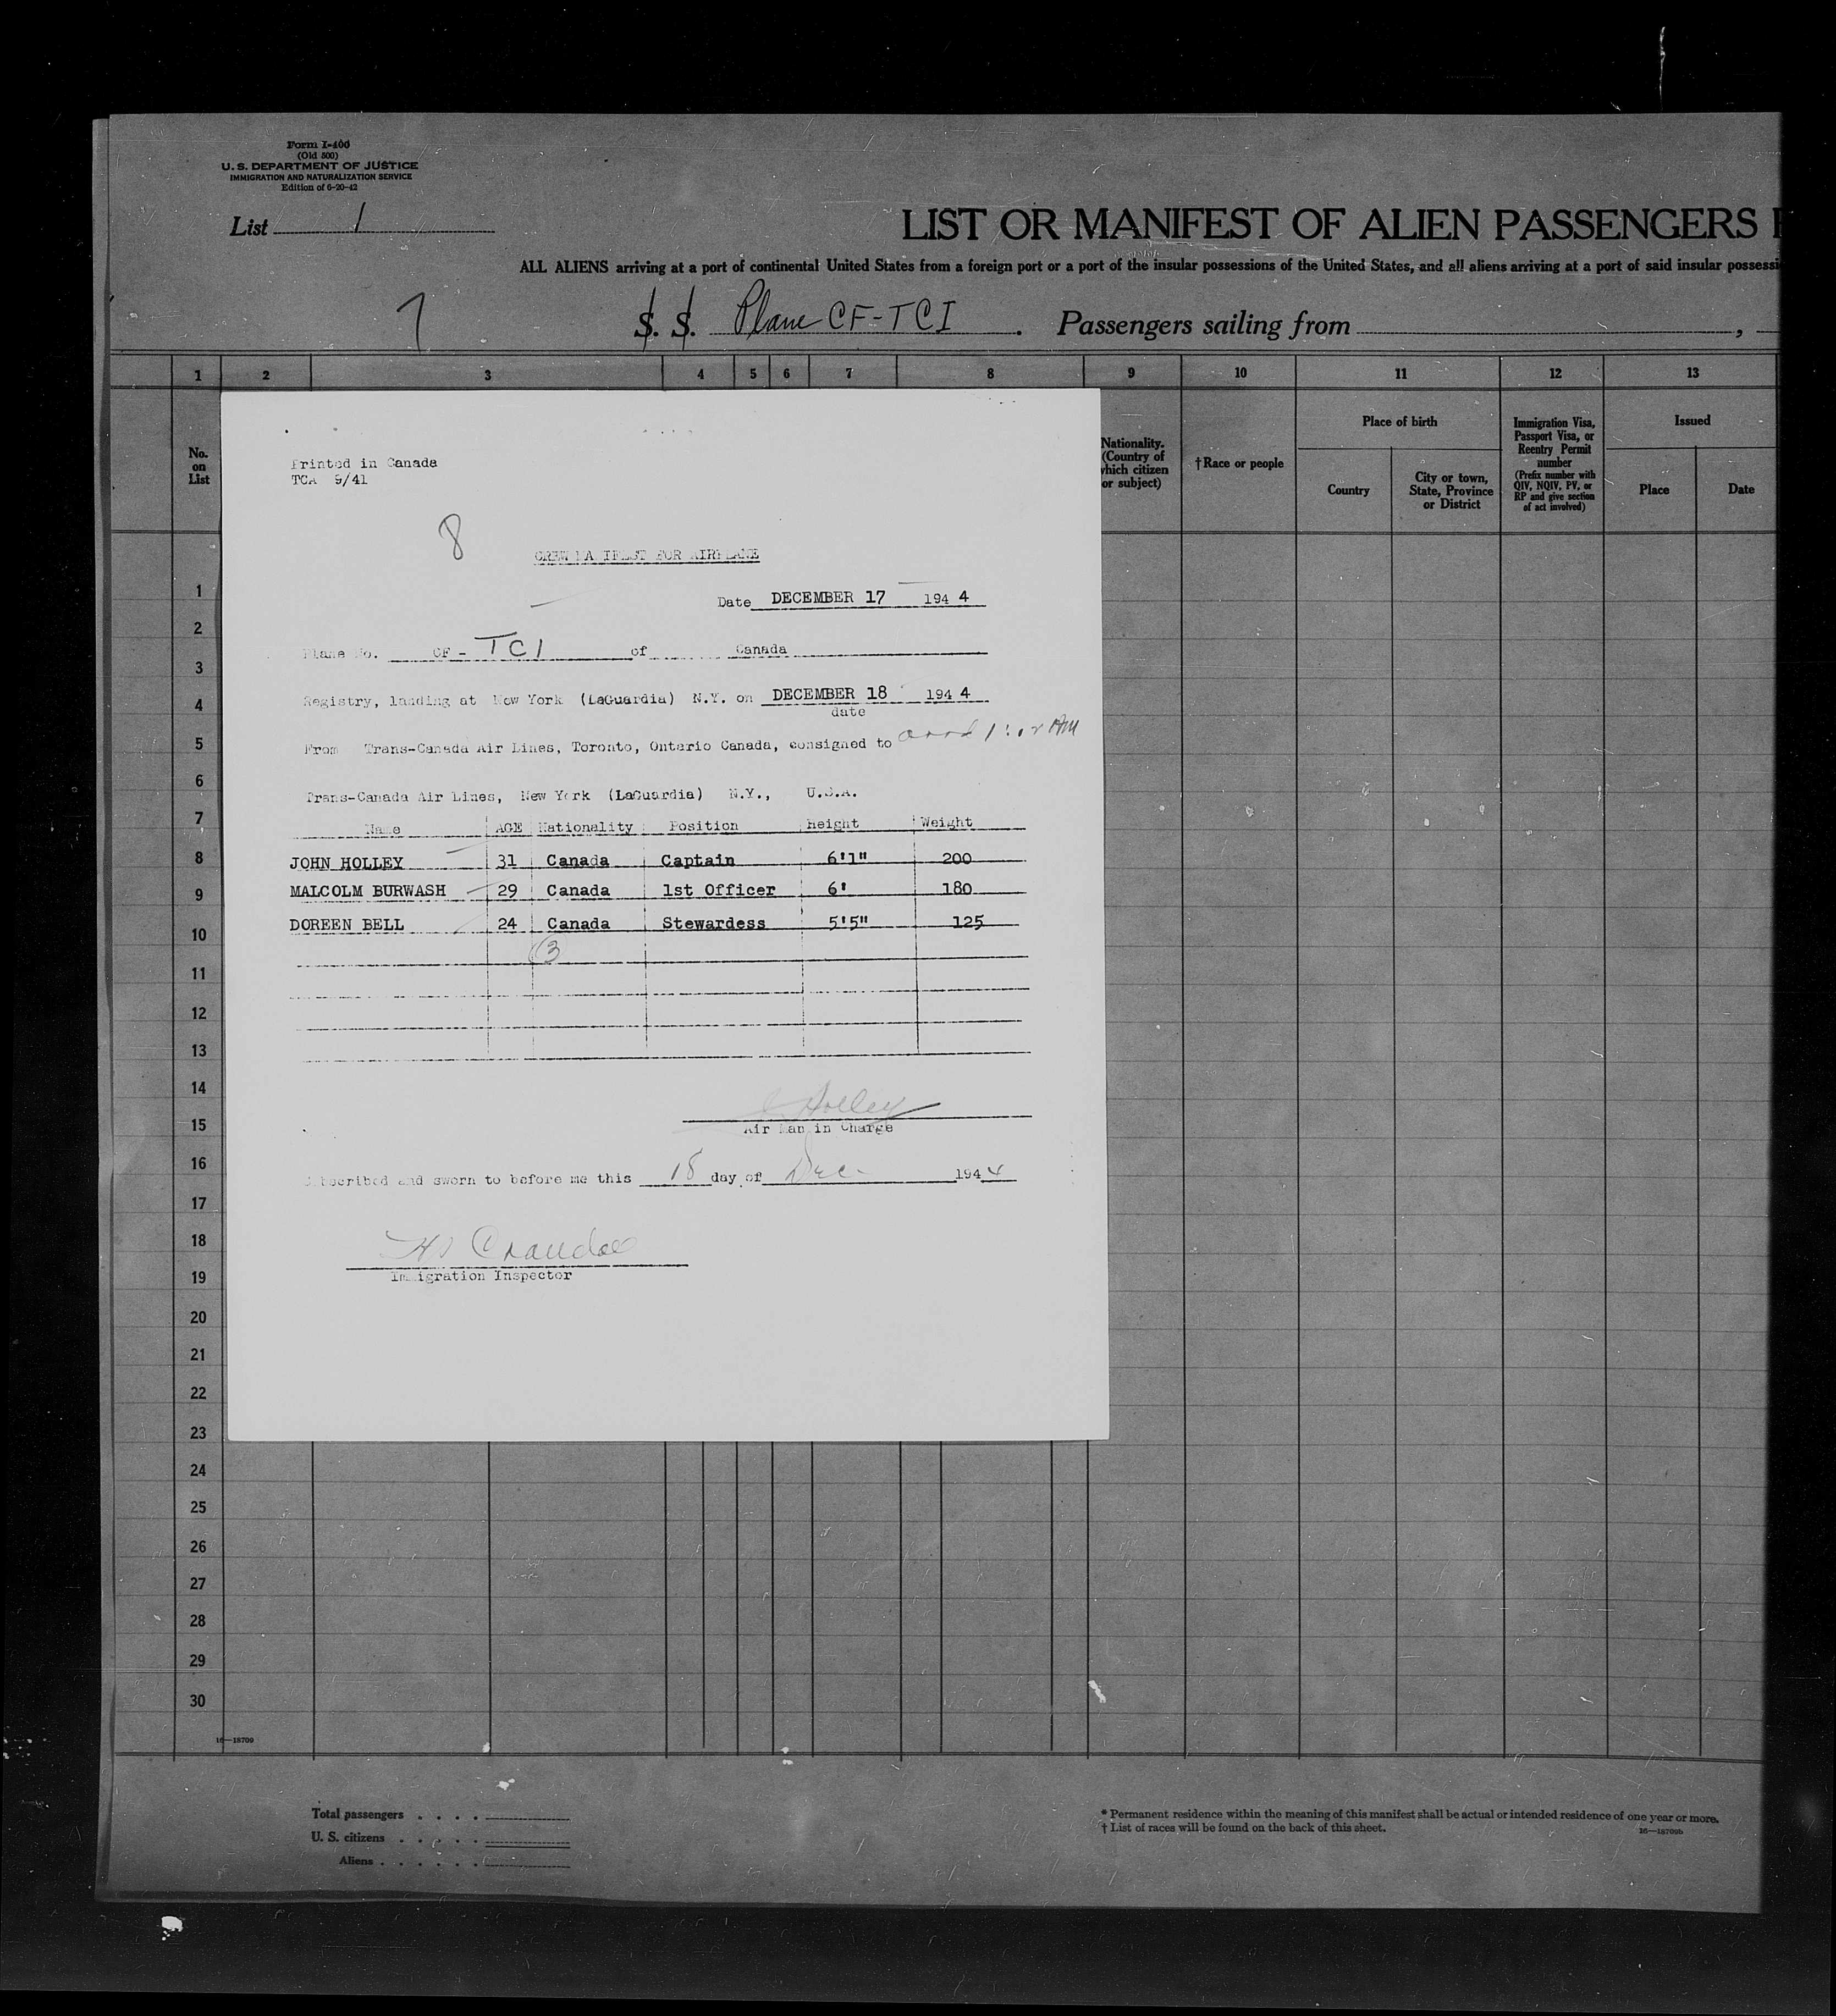 Form I-400
(Old 500)
U. S. DEPARTMENT OF JUSTICE
IMMIGRATION AND NATURALIZATION SERVICE
Edition of 6-20-42
List 1
LIST OR MANIFEST OF ALIEN PASSENGERS
ALL ALIENS arriving at a port of continental United States from a foreign port or a port of the insular possessions of the United States, and all aliens arriving at a port of said insular possessi
7 S. S. Plane CF-TCI . Passengers sailing from ,
1 2 3 4 5 6 7 8 9 10 11 12 13
No. on List
Nationality. (Country of which citizen or subject)
†Race or people
Place of birth
Country
City or town, State, Province or District
Immigration Visa, Passport Visa, or Reentry Permit number
(Prefix number with QIV, NQIV, PV, or RP and give section of act involved)
Issued
Place
Date
Printed in Canada
TCA 9/41
8
CREW MANIFEST FOR AIRPLANE
Date DECEMBER 17 194 4
Plane No. CF - TCI of Canada
Registry, landing at New York (LaGuardia) N.Y. on DECEMBER 18 194 4
date
From Trans-Canada Air Lines, Toronto, Ontario Canada, consigned to
Trans-Canada Air Lines, New York (LaGuardia) N.Y., U.S.A.
Name AGE Nationality Position height Weight
JOHN HOLLEY 31 Canada Captain 6'1" 200
MALCOLM BURWASH 29 Canada 1st Officer 6' 180
DOREEN BELL 24 Canada Stewardess 5'5" 125
3
J Holley
Air Man in Charge
Subscribed and sworn to before me this 18 day of Dec- 194 4
Immigration Inspector
1
2
3
4
5
6
7
8
9
10
11
12
13
14
15
16
17
18
19
20
21
22
23
24
25
26
27
28
29
30
16—18709
Total passengers . . . .
U. S. citizens . . . . .
Aliens . . . . . .
* Permanent residence within the meaning of this manifest shall be actual or intended residence of one year or more.
† List of races will be found on the back of this sheet.
16—18709b